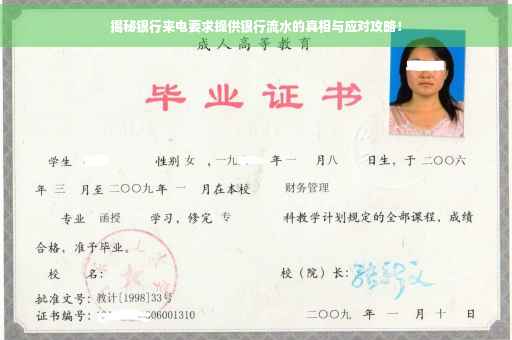 揭秘银行来电要求提供银行流水的真相与应对攻略！
成人高等教育
毕业证书
学生 性别 女 ，一九 年 一 月 八 日生，于 二〇〇六
年 三 月至 二〇〇九 年 一 月在本校 财务管理
专业 函授 学习，修完 专 科教学计划规定的全部课程，成绩
合格，准予毕业。
校 名： 校（院）长：
批准文号：教计[1998]33号
证书编号： 06001310 二〇〇九 年 一 月 十 日